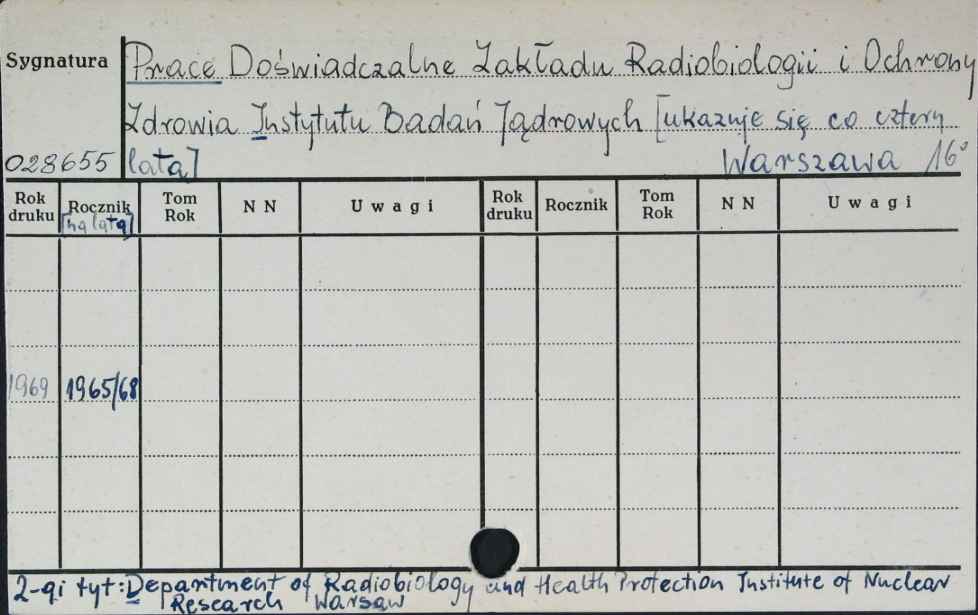 Sygnatura Prace Doświadczalne Zakładu Radiobiologii i Ochrony
Zdrowia Instytutu Badań Jądrowych [ukazuje się co cztery
028655 lata] Warszawa 16°
Rok druku Rocznik [na lata] Tom Rok N N Uwagi Rok druku Rocznik Tom Rok N N Uwagi
1969 1965/68
2-gi tyt: Department of Radiobiology and Health Protection Institute of Nuclear
Research Warsaw